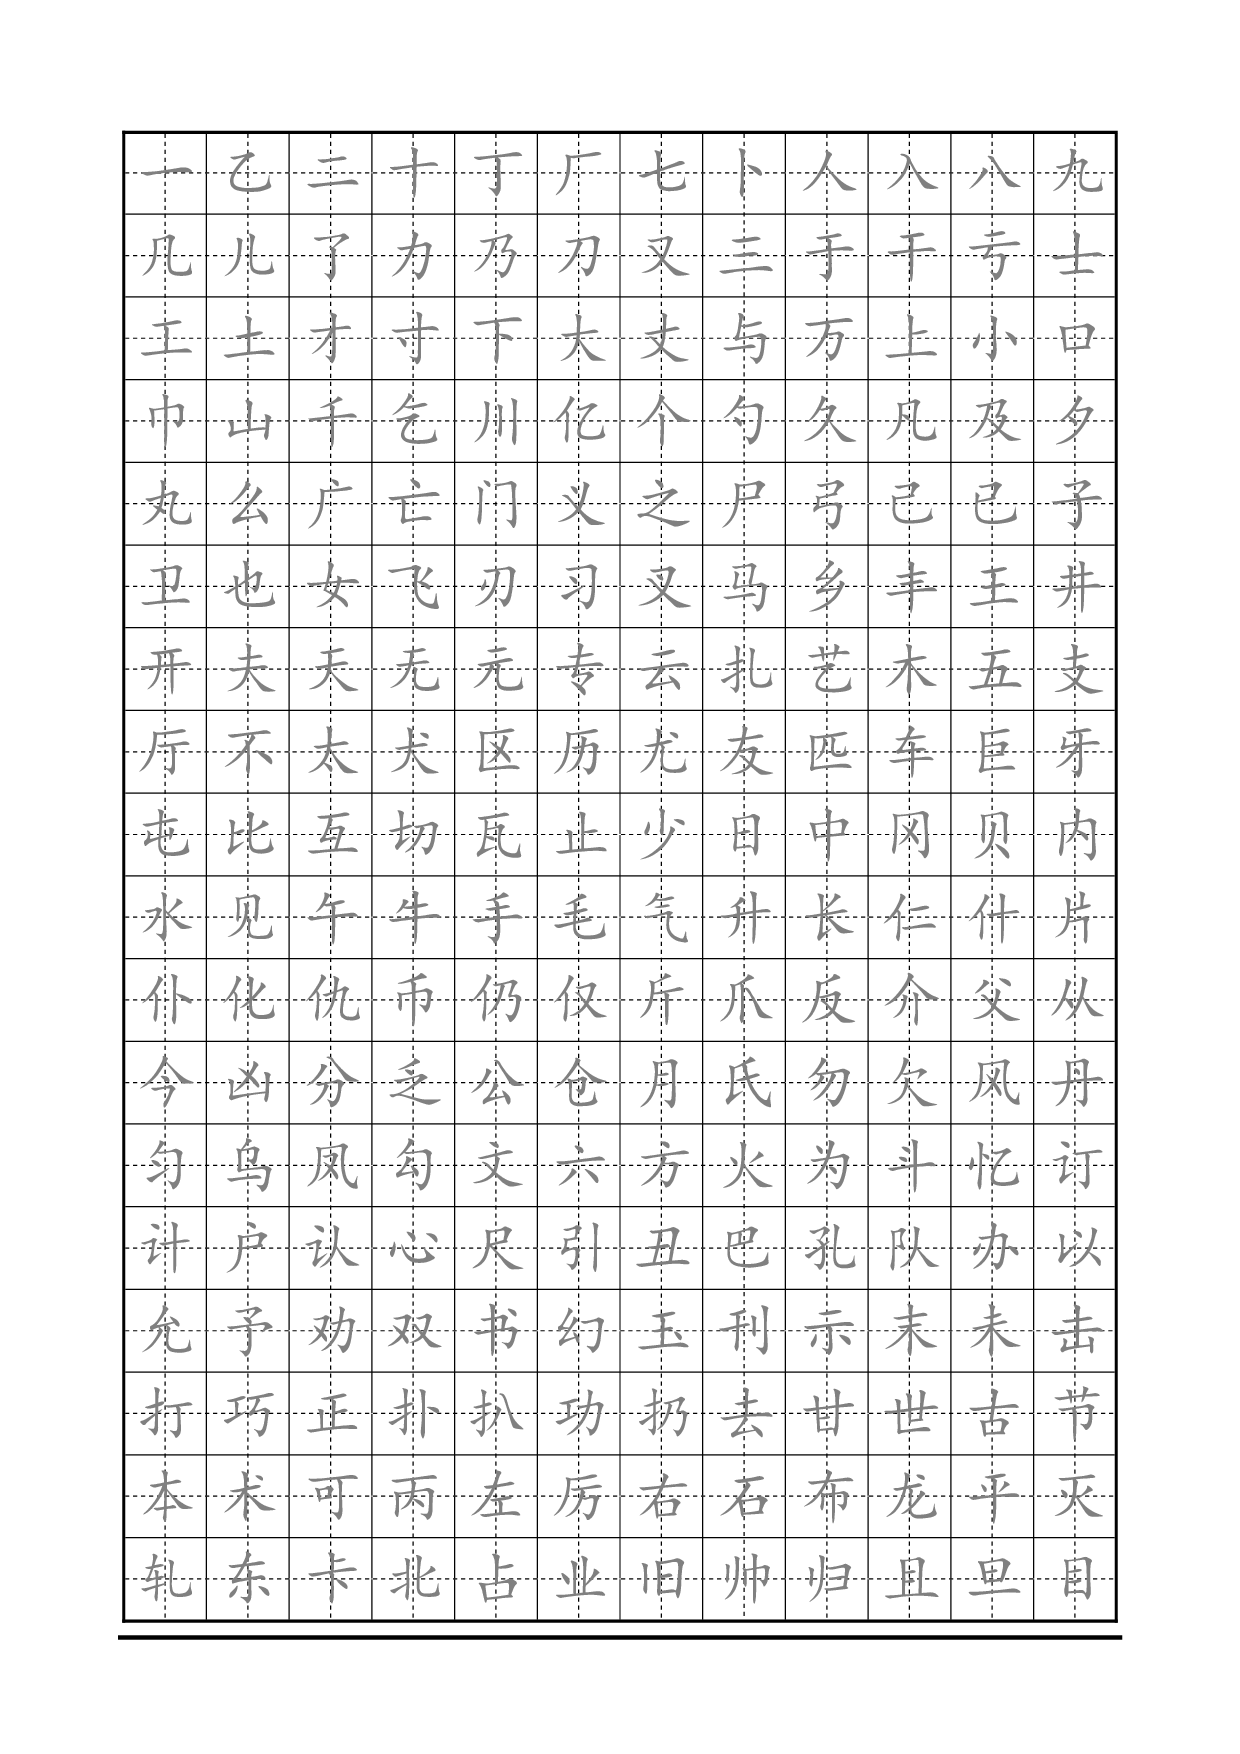 一乙二十丁厂七卜人入八九
几儿了力乃刀又三于干亏士
工土才寸下大丈与万上小口
巾山千乞川亿个勺久凡及夕
丸么广亡门义之尸弓己已子
卫也女飞刃习叉马乡丰王井
开夫天无元专云扎艺木五支
厅不太犬区历尤友匹车巨牙
屯比互切瓦止少日中冈贝内
水见午牛手毛气升长仁什片
仆化仇币仍仅斤爪反介父从
今凶分乏公仓月氏勿欠风丹
匀鸟凤勾文六方火为斗忆订
计户认心尺引丑巴孔队办以
允予劝双书幻玉刊示末未击
打巧正扑扒功扔去甘世古节
本术可丙左厉右石布龙平灭
轧东卡北占业旧帅归且旦目